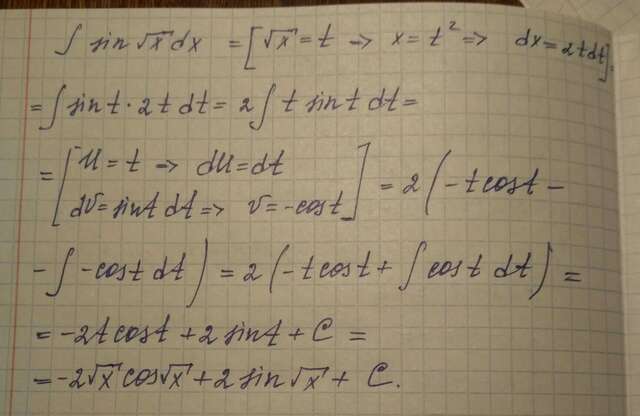 ∫ sin √x dx = [√x = t → x = t² ⇒ dx = 2tdt] =
= ∫ sin t · 2t dt = 2 ∫ t sin t dt =
= [U = t → dU = dt
dV = sin t dt ⇒ V = -cos t] = 2 (-t cos t -
- ∫ -cos t dt) = 2 (-t cos t + ∫ cos t dt) =
= -2t cos t + 2 sin t + C =
= -2√x cos √x + 2 sin √x + C.